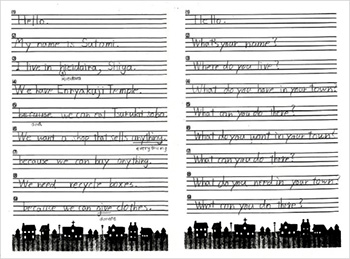 Hello.
My name is Satomi.
I live in
We have Enryakuji Temple.
because we can eat Tsurukisoba.
We want a shop that sells anything.
everything
because we can buy anything.
We need recycle boxes.
because we can give clothes.
donate
Hello.
What's your name?
Where do you live?
What do you have in your town?
What can you do there?
What do you want in your town?
What can you do there?
What do you need in your town?
What can you do there?